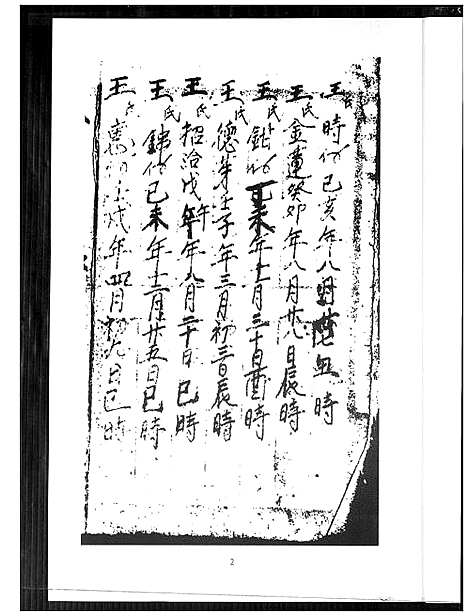 王氏時仍己亥年八月廿七丑時
王氏金蓮癸卯年八月廿八日辰時
王氏年十一月三十日酉時
王氏德芽壬子年三月初三日辰時
王氏招治戊午年八月二十日巳時
王氏錦仍己未年十二月廿五日巳時
王氏戌年四月初九日巳時
2